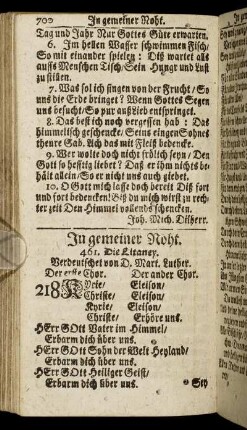 700 In gemeiner Noht.
Tag und Jahr Nur Gottes Güte erwarten.
6. Im hellen Wasser schwimmen Fisch/
So mit einander spielen: Diß wartet alls
auffs Menschen Tisch/ Sein Hungr und Lust
zu stillen.
7. Was sol ich singen von der Frucht/ So
uns die Erde bringet? Wenn Gottes Segen
uns besucht/ So pur auß Lieb entspringet.
8. Das best ich noch vergessen hab: Das
himmelisch geschencke/ Seins eingen Sohnes
theure Gab. Ach das mit Fleiß bedencke.
9. Wer wolte doch nicht frölich seyn/ Den
Gott so hefftig liebet? Daß er ihm nichts be-
hält allein/ So er nicht uns auch giebet.
10. O Gott mich lasse doch bereit Diß fort
und fort bedencken! Biß du mich wirst zu rech-
ter zeit Den Himmel vollends schencken.
Joh. Mich. Dilherr.
In gemeiner Noht.
461. Die Litaney.
Verdeutschet von D. Mart. Luther.
Der erste Chor. Der ander Chor.
218 Kyrie/ Eleison/
Christe/ Eleison/
Kyrie/ Eleison/
Christe/ Erhöre uns.
HErr GOtt Vater im Himmel/
Erbarm dich über uns.
HErr GOtt Sohn der Welt Heyland/
Erbarm dich über uns.
HErr GOtt Heiliger Geist/
Erbarm dich über uns. Sey